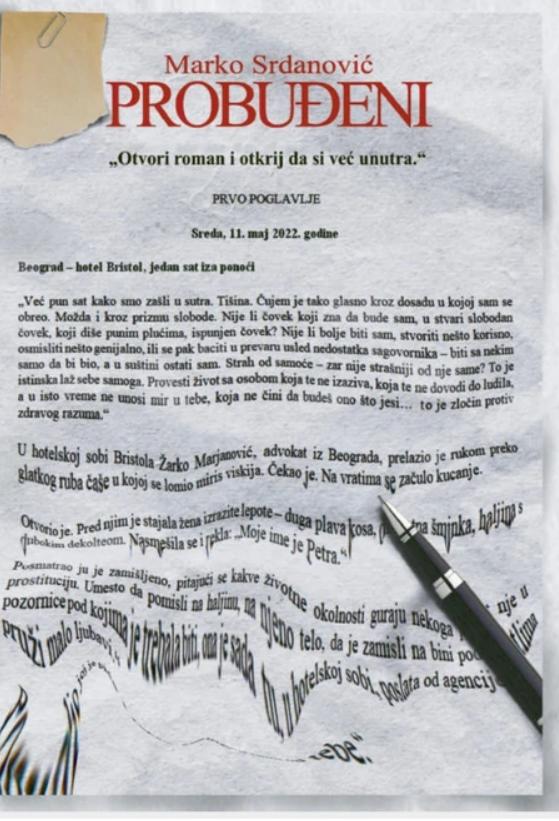 Marko Srdanović
PROBUĐENI
„Otvori roman i otkrij da si već unutra.“
PRVO POGLAVLJE
Sreda, 11. maj 2022. godine
Beograd – hotel Bristol, jedan sat iza ponoći
„Već pun sat kako smo zašli u sutra. Tišina. Čujem je tako glasno kroz dosadu u kojoj sam se
obreo. Možda i kroz prizmu slobode. Nije li čovek koji zna da bude sam, u stvari slobodan
čovek, koji diše punim plućima, ispunjen čovek? Nije li bolje biti sam, stvoriti nešto korisno,
osmisliti nešto genijalno, ili se pak baciti u prevaru usled nedostatka sagovornika – biti sa nekim
samo da bi bio, a u suštini ostati sam. Strah od samoće – zar nije strašniji od nje same? To je
istinska laž sebe samoga. Provesti život sa osobom koja te ne izaziva, koja te ne dovodi do ludila,
a u isto vreme ne unosi mir u tebe, koja ne čini da budeš ono što jesi... to je zločin protiv
zdravog razuma.“
U hotelskoj sobi Bristola Žarko Marjanović, advokat iz Beograda, prelazio je rukom preko
glatkog ruba čaše u kojoj se lomio miris viskija. Čekao je. Na vratima se začulo kucanje.
Otvorio je. Pred njim je stajala žena izrazite lepote – duga plava kosa, šminka, haljina s
dubokim dekolteom. Nasmešila se i rekla: „Moje ime je Petra.“
Posmatrao ju je zamišljeno, pitajući se kakve životne okolnosti guraju nekoga nje u
prostituciju. Umesto da pomisli na haljinu, na njeno telo, da je zamisli na bini
pozornice pod kojima je trebala biti, ona je sada tu, u hotelskoj sobi, poslata od
pruži malo ljubavi,